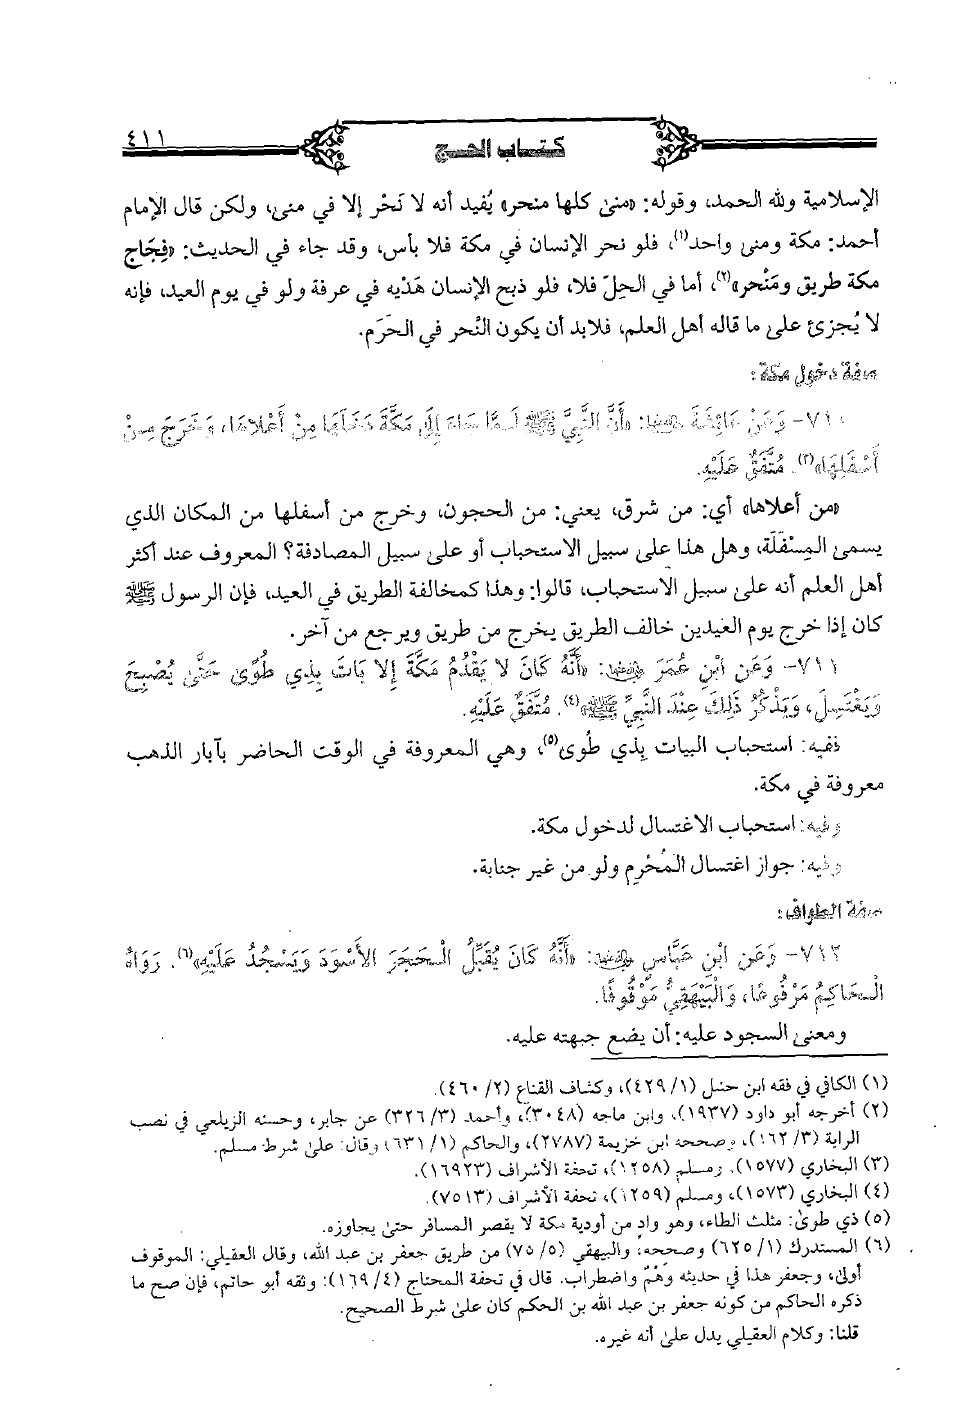 ٤١١
كتاب الحج
الإسلامية ولله الحمد، وقوله: «منىٰ كلها منحر» يُفيد أنه لا نَحْر إلا في منىٰ، ولكن قال الإمام
أحمد: مكة ومنىٰ واحد(١)، فلو نحر الإنسان في مكة فلا بأس، وقد جاء في الحديث: «فِجَاج
مكة طريق ومَنْحر»(٢)، أما في الحِلّ فلا، فلو ذبح الإنسان هَدْيه في عرفة ولو في يوم العيد، فإنه
لا يُجزئ علىٰ ما قاله أهل العلم، فلابد أن يكون النَّحر في الحَرَم.
صفة دخول مكة:
٧١٠- وَعَنْ عَائِشَةَ ﵂: «أَنَّ النَّبِيَّ ﷺ لَمَّا جَاءَ إِلَىٰ مَكَّةَ دَخَلَهَا مِنْ أَعْلَاهَا، وَخَرَجَ مِنْ
أَسْفَلِهَا»(٣). مُتَّفَقٌ عَلَيْهِ.
«من أعلاها» أي: من شرق، يعني: من الحجون، وخرج من أسفلها من المكان الذي
يسمىٰ المِسْفَلَة، وهل هذا علىٰ سبيل الاستحباب أو علىٰ سبيل المصادفة؟ المعروف عند أكثر
أهل العلم أنه علىٰ سبيل الاستحباب، قالوا: وهذا كمخالفة الطريق في العيد، فإن الرسول ﷺ
كان إذا خرج يوم العيدين خالف الطريق يخرج من طريق ويرجع من آخر.
٧١١- وَعَنِ ابْنِ عُمَرَ ﵄: «أَنَّهُ كَانَ لَا يَقْدُمُ مَكَّةَ إِلا بَاتَ بِذِي طُوًى حَتَّىٰ يُصْبِحَ
وَيَغْتَسِلَ، وَيَذْكُرُ ذَلِكَ عِنْدَ النَّبِيِّ ﷺ»(٤). مُتَّفَقٌ عَلَيْهِ.
ففيه: استحباب البيات بِذي طُوىٰ(٥)، وهي المعروفة في الوقت الحاضر بآبار الذهب
معروفة في مكة.
وفيه: استحباب الاغتسال لدخول مكة.
وفيه: جواز اغتسال المُحْرِم ولو من غير جنابة.
صفة الطواف:
٧١٢- وَعَنِ ابْنِ عَبَّاسٍ ﵄: «أَنَّهُ كَانَ يُقَبِّلُ الْحَجَرَ الأَسْوَدَ وَيَسْجُدُ عَلَيْهِ»(٦). رَوَاهُ
الْحَاكِمُ مَرْفُوعًا، وَالْبَيْهَقِيُّ مَوْقُوفًا.
ومعنىٰ السجود عليه: أن يضع جبهته عليه.
(١) الكافي في فقه ابن حنبل (١/ ٤٢٩)، وكشاف القناع (٢/ ٤٦٠).
(٢) أخرجه أبو داود (١٩٣٧)، وابن ماجه (٣٠٤٨)، وأحمد (٣/ ٣٢٦) عن جابر، وحسنه الزيلعي في نصب
الراية (٣/ ١٦٢)، وصححه ابن خزيمة (٢٧٨٧)، والحاكم (١/ ٦٣١) وقال: علىٰ شرط مسلم.
(٣) البخاري (١٥٧٧)، ومسلم (١٢٥٨)، تحفة الأشراف (١٦٩٢٣).
(٤) البخاري (١٥٧٣)، ومسلم (١٢٥٩)، تحفة الأشراف (٧٥١٣).
(٥) ذي طوىٰ: مثلث الطاء، وهو وادٍ من أودية مكة لا يقصر المسافر حتىٰ يجاوزه.
(٦) المستدرك (١/ ٦٢٥) وصححه، والبيهقي (٥/ ٧٥) من طريق جعفر بن عبد الله، وقال العقيلي: الموقوف
أولىٰ، وجعفر هذا في حديثه وَهْمٌ واضطراب. قال في تحفة المحتاج (٤/ ١٦٩): وثقه أبو حاتم، فإن صح ما
ذكره الحاكم من كونه جعفر بن عبد الله بن الحكم كان علىٰ شرط الصحيح.
قلنا: وكلام العقيلي يدل علىٰ أنه غيره.